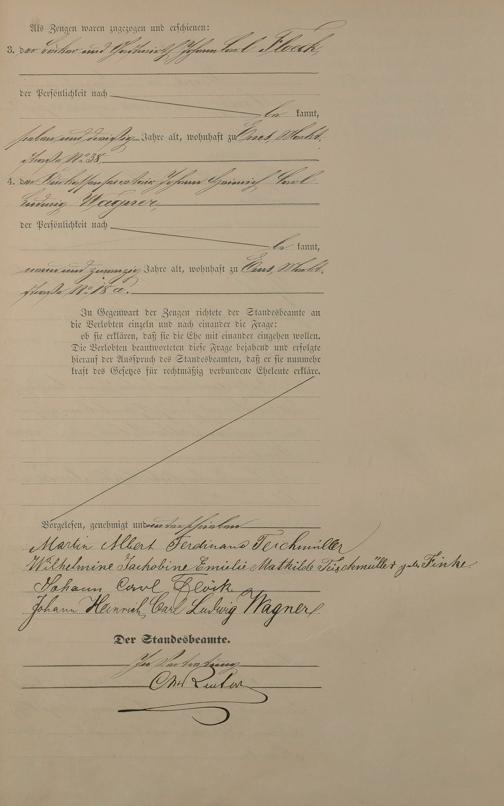 Als Zeugen waren zugezogen und erschienen:
3. der und Johann Carl Floeck,
der Persönlichkeit nach
be kannt,
sieben und dreißig Jahre alt, wohnhaft zu Ems, Markt-
straße No 38,
4. der Johann Heinrich Carl
Ludwig Wagner,
der Persönlichkeit nach
be kannt,
neun und zwanzig Jahre alt, wohnhaft zu Ems, Markt-
straße No 18 a.
In Gegenwart der Zeugen richtete der Standesbeamte an
die Verlobten einzeln und nach einander die Frage:
ob sie erklären, daß sie die Ehe mit einander eingehen wollen.
Die Verlobten beantworteten diese Frage bejahend und erfolgte
hierauf der Ausspruch des Standesbeamten, daß er sie nunmehr
kraft des Gesetzes für rechtmäßig verbundene Eheleute erkläre.
Vorgelesen, genehmigt und unterschrieben
Martin Albert Ferdinand Teichmüller
Wilhelmine Jachobine Emilie Mathilde Teichmüller geb. Finke
Johann Carl Flöck
Johann Heinrich Carl Ludwig Wagner
Der Standesbeamte.
In Vertretung